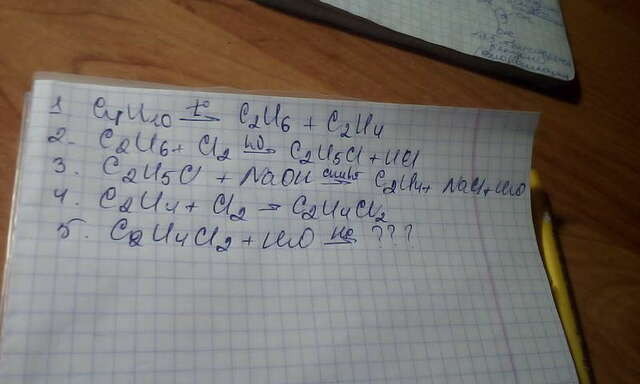 1. C4H10 t° → C2H6 + C2H4
2. C2H6 + Cl2 hν → C2H5Cl + HCl
3. C2H5Cl + NaOH спирт → C2H4 + NaCl + H2O
4. C2H4 + Cl2 → C2H4Cl2
5. C2H4Cl2 + H2O → ???